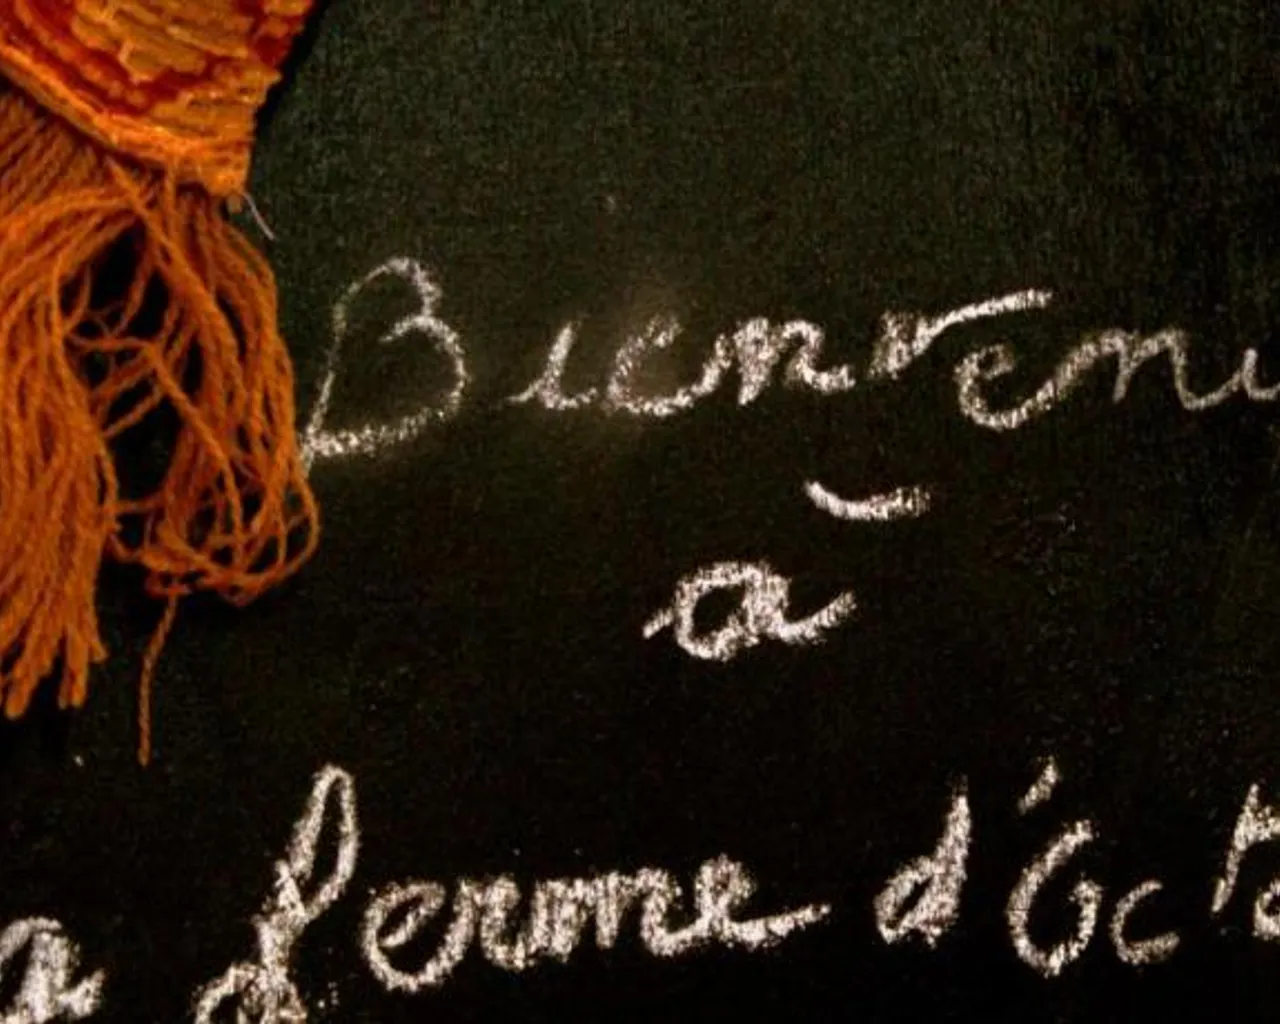 Bienvenu
à
a ferme d'Octo